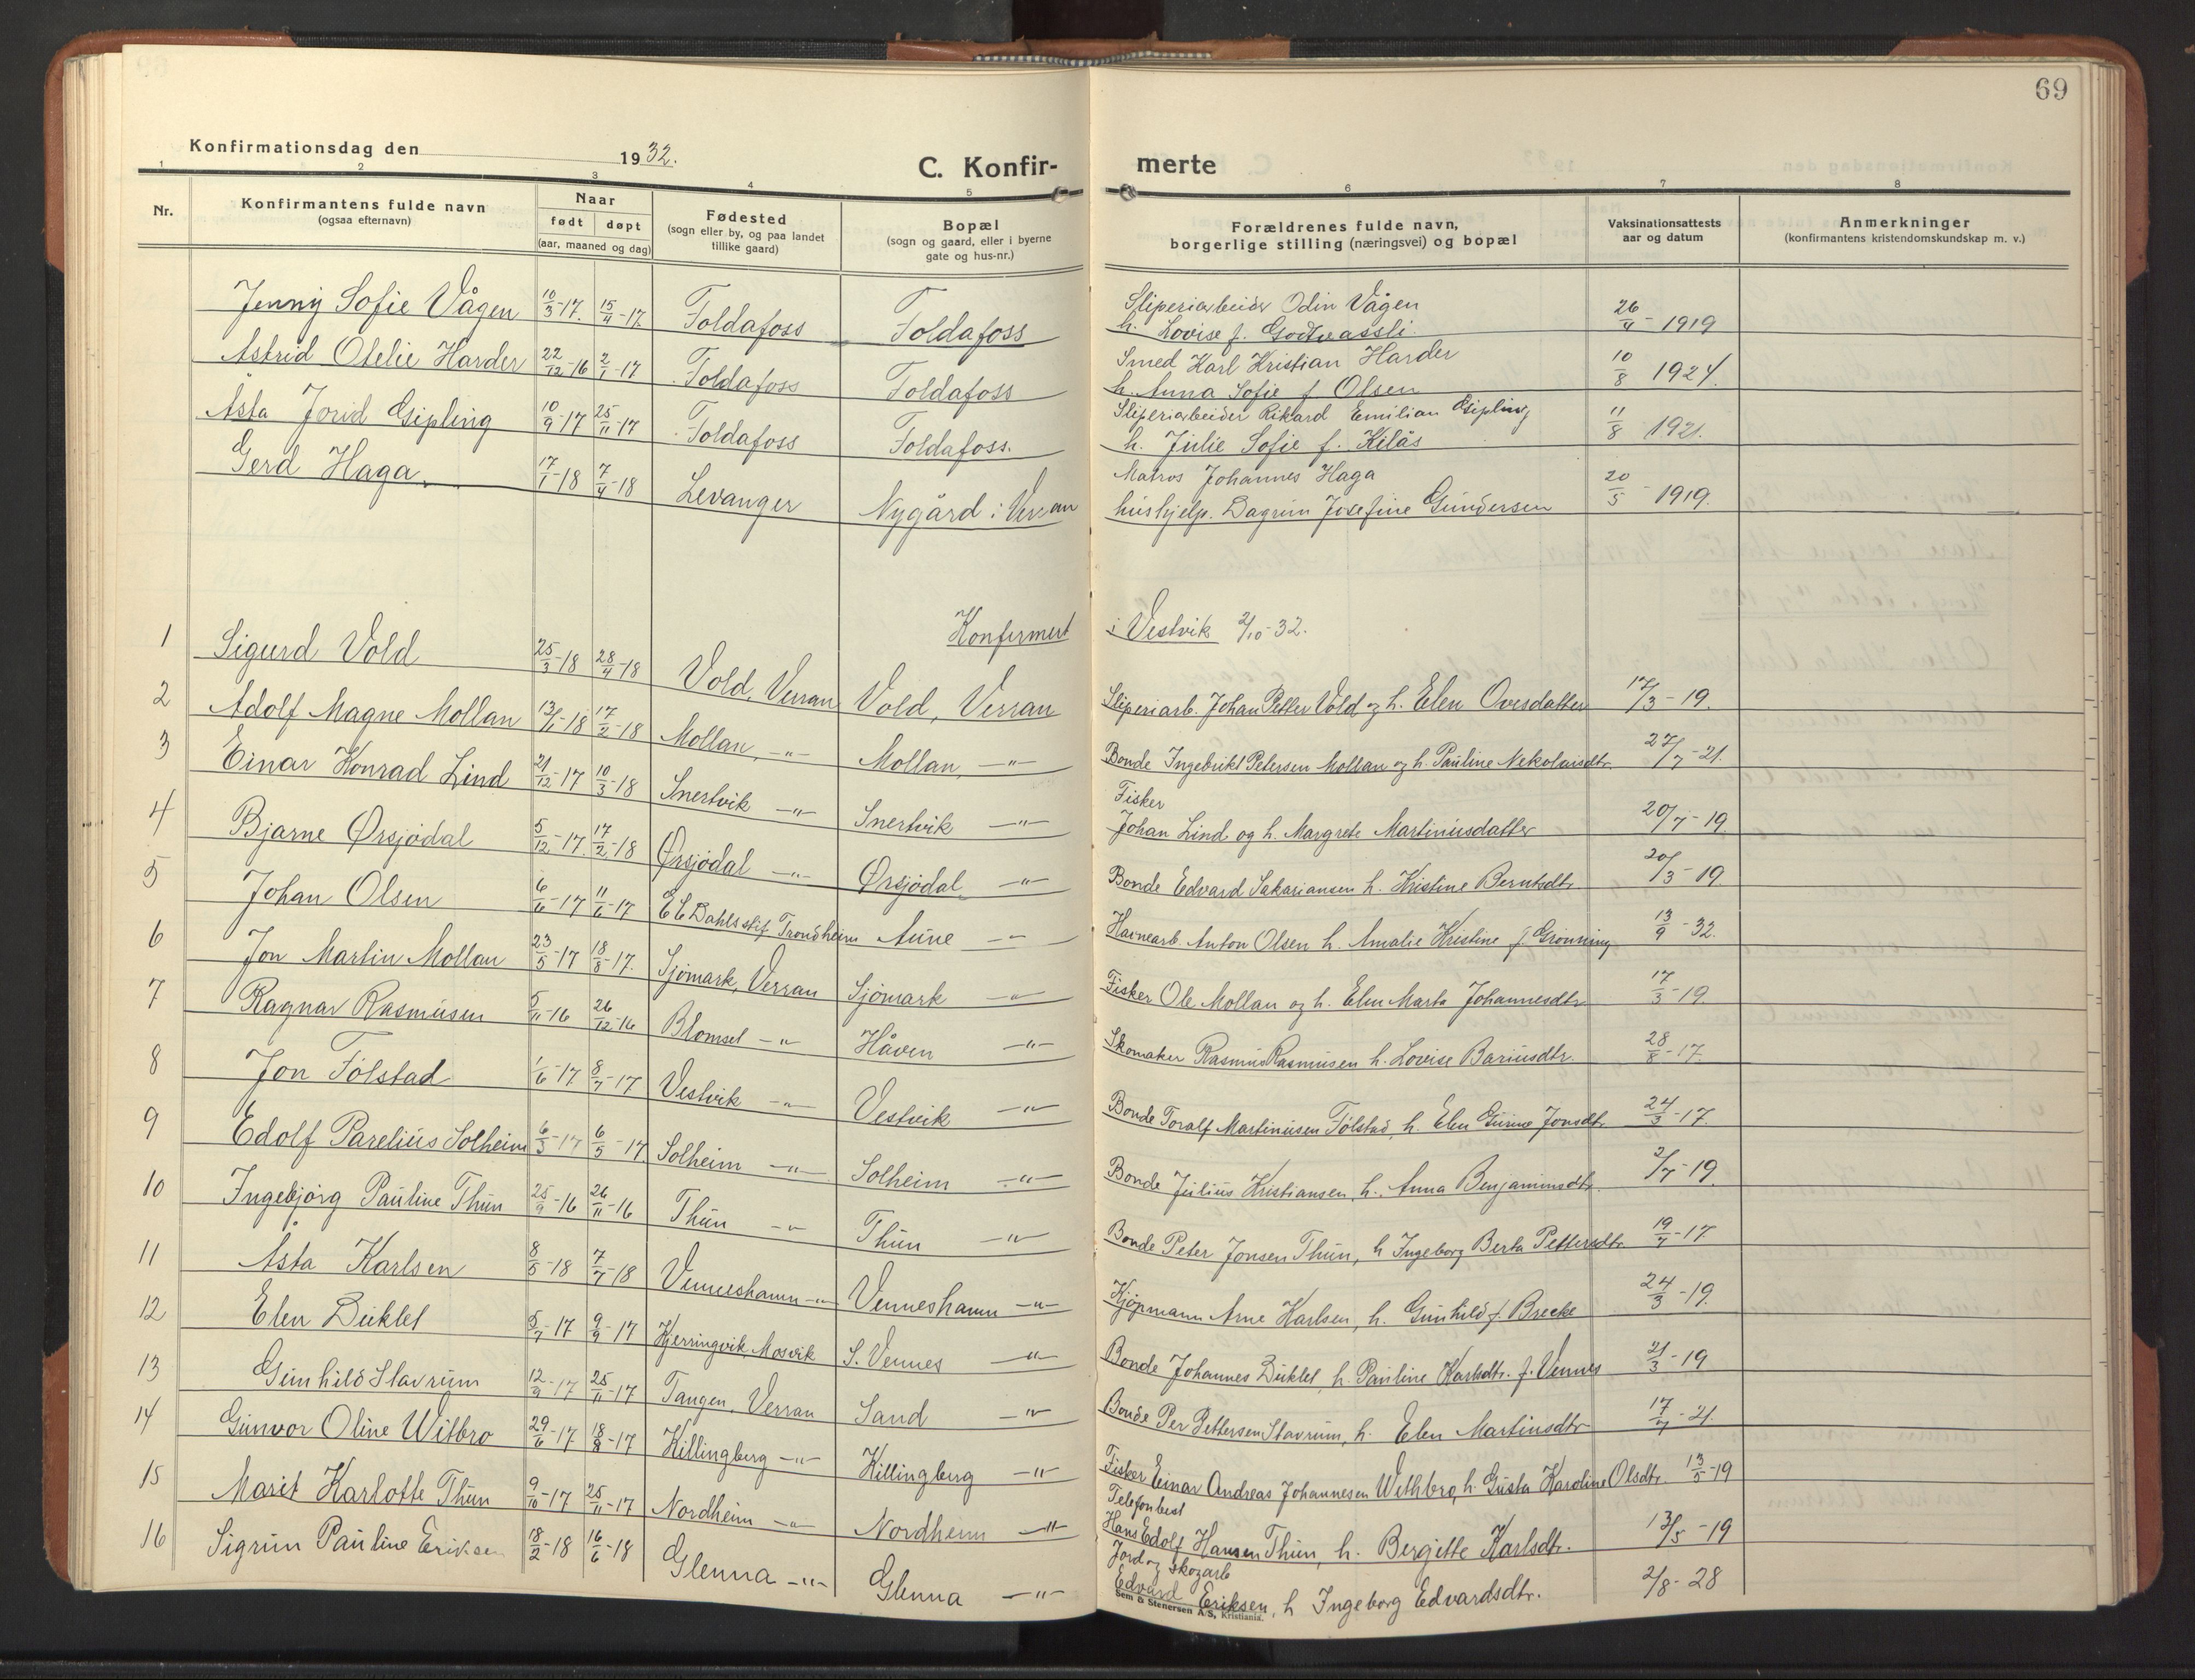 69
Konfirmationsdag den 1932.
C. Konfir-
merte
1 2 3 4 5 6 7 8
Nr.
Konfirmantens fulde navn
(ogsaa efternavn)
Naar
født døpt
(aar, maaned og dag)
Fødested
(sogn eller by, og paa landet
tillike gaard)
Bopæl
(sogn og gaard, eller i byerne
gate og hus-nr.)
Forældrenes fulde navn,
borgerlige stilling (næringsvei) og bopæl
Vaksinationsattests
aar og datum
Anmerkninger
(konfirmantens kristendomskundskap m. v.)
Jenny Sofie Vågen 10/3-17. 15/4-17. Foldafoss Foldafoss Sliperiarbeider Odin Vågen
h. Lovise f. Godtvassli. 26/4-1919
Astrid Otelie Harder 22/12-16 2/1-17 Foldafoss Foldafoss Smed Karl Kristian Harder
h. Anna Sofie f Olsen 10/8 1924.
Åsta Jorid Gipling 10/9-17 25/11-17 Foldafoss Foldafoss. Sliperiarbeider Rikard Emilian Gipling
h. Julie Sofie f. Kelås 11/8 1921.
Gerd Haga. 17/1-18 7/4-18 Levanger Nygård i Verran Matros Johannes Haga
hushjelp. Dagrun Josefine Gundersen 20/5-1919.
Konfirmert i Vestvik 2/10-32.
1 Sigurd Vold 25/3-18 28/4-18 Vold, Verran Vold, Verran Sliperiarb. Johan Petter Vold og h. Elen Ovesdatter 17/3-19.
2 Adolf Magne Mollan 13/1-18 17/2-18 Mollan, -"- Mollan, -"- Bonde Ingebrikt Petersen Mollan og h. Pauline Nekolaisdtr. 27/7-21.
3 Einar Konrad Lind 21/12-17 10/3-18 Snertvik -"- Snertvik -"- Fisker
Johan Lind og h. Margrete Martinusdatter 20/7-19.
4 Bjarne Ørsjødal 5/12-17. 17/2-18 Ørsjødal -"- Ørsjødal -"- Bonde Edvard Sakariansen h. Kristine Berntsdtr. 20/3-19.
5 Johan Olsen 6/6-17 11/6-17 E C Dahls stif. Trondheim Aune -"- Havnearb. Anton Olsen h. Amalie Kristine f. Grønning 13/9-32.
6 Jon Martin Mollan 23/5-17 18/8-17. Sjømark, Verran Sjømark -"- Fisker Ole Mollan og h. Elen Marta Johannesdtr. 17/3-19.
7 Ragnar Rasmusen 5/11-16 26/12-16 Blomsel -"- Håven -"- Skomaker Rasmus Rasmusen h. Lovise Bariusdtr. 28/8-17.
8 Jon Følstad 1/6-17 8/7-17 Vestvik -"- Vestvik -"- Bonde Toralf Martinusen Følstad, h. Elen Gurine Jonsdtr. 24/3-17.
9 Edolf Parelius Solheim 6/3-17 6/5-17. Solheim -"- Solheim -"- Bonde Julius Kristiansen, h. Anna Benjaminsdtr. 2/7-19.
10 Ingebjørg Pauline Thun 25/9-16 26/11-16 Thun -"- Thun -"- Bonde Peter Jonsen Thun, h Ingeborg Berta Pettersdtr. 19/7-17.
11 Åsta Karlsen 8/5-18 7/7-18 Venneshamn -"- Venneshamn -"- Kjøpmann Arne Karlsen, h. Gunhild f. Brecke 24/3-19.
12 Elen Duklet 5/7-17 9/9-17 Kjerringvik, Mosvik S. Vennes -"- Bonde Johannes Duklet, h. Pauline Karlsdtr. f. Vennes 21/3-19
13 Gunhild Stavrum 12/9-17 25/11-17 Tangen, Verran Sand -"- Bonde Per Pettersen Stavrum, h. Elen Martinsdtr 17/7-21.
14 Gunvor Oline Witbro 29/6-17 18/8-17 Killingberg -"- Killingberg -"- Fisker Einar Andreas Johannesen Withbro, h. Gusta Karoline Olsdtr. 13/5-19
15 Marit Karlotte Thun 9/10-17 25/11-17 Nordheim -"- Nordheim -"- Telefonbest
Hans Edolf Hansen Thun, h. Bergitte Karlsdtr. 13/5-19
16 Sigrun Pauline Eriksen 18/2-18 16/6-18 Glenna -"- Glenna -"- Jord og skogarb
Edvard Eriksen, h Ingeborg Edvardsdtr. 2/8-28
Sem & Stenersen A/S, Kristiania.